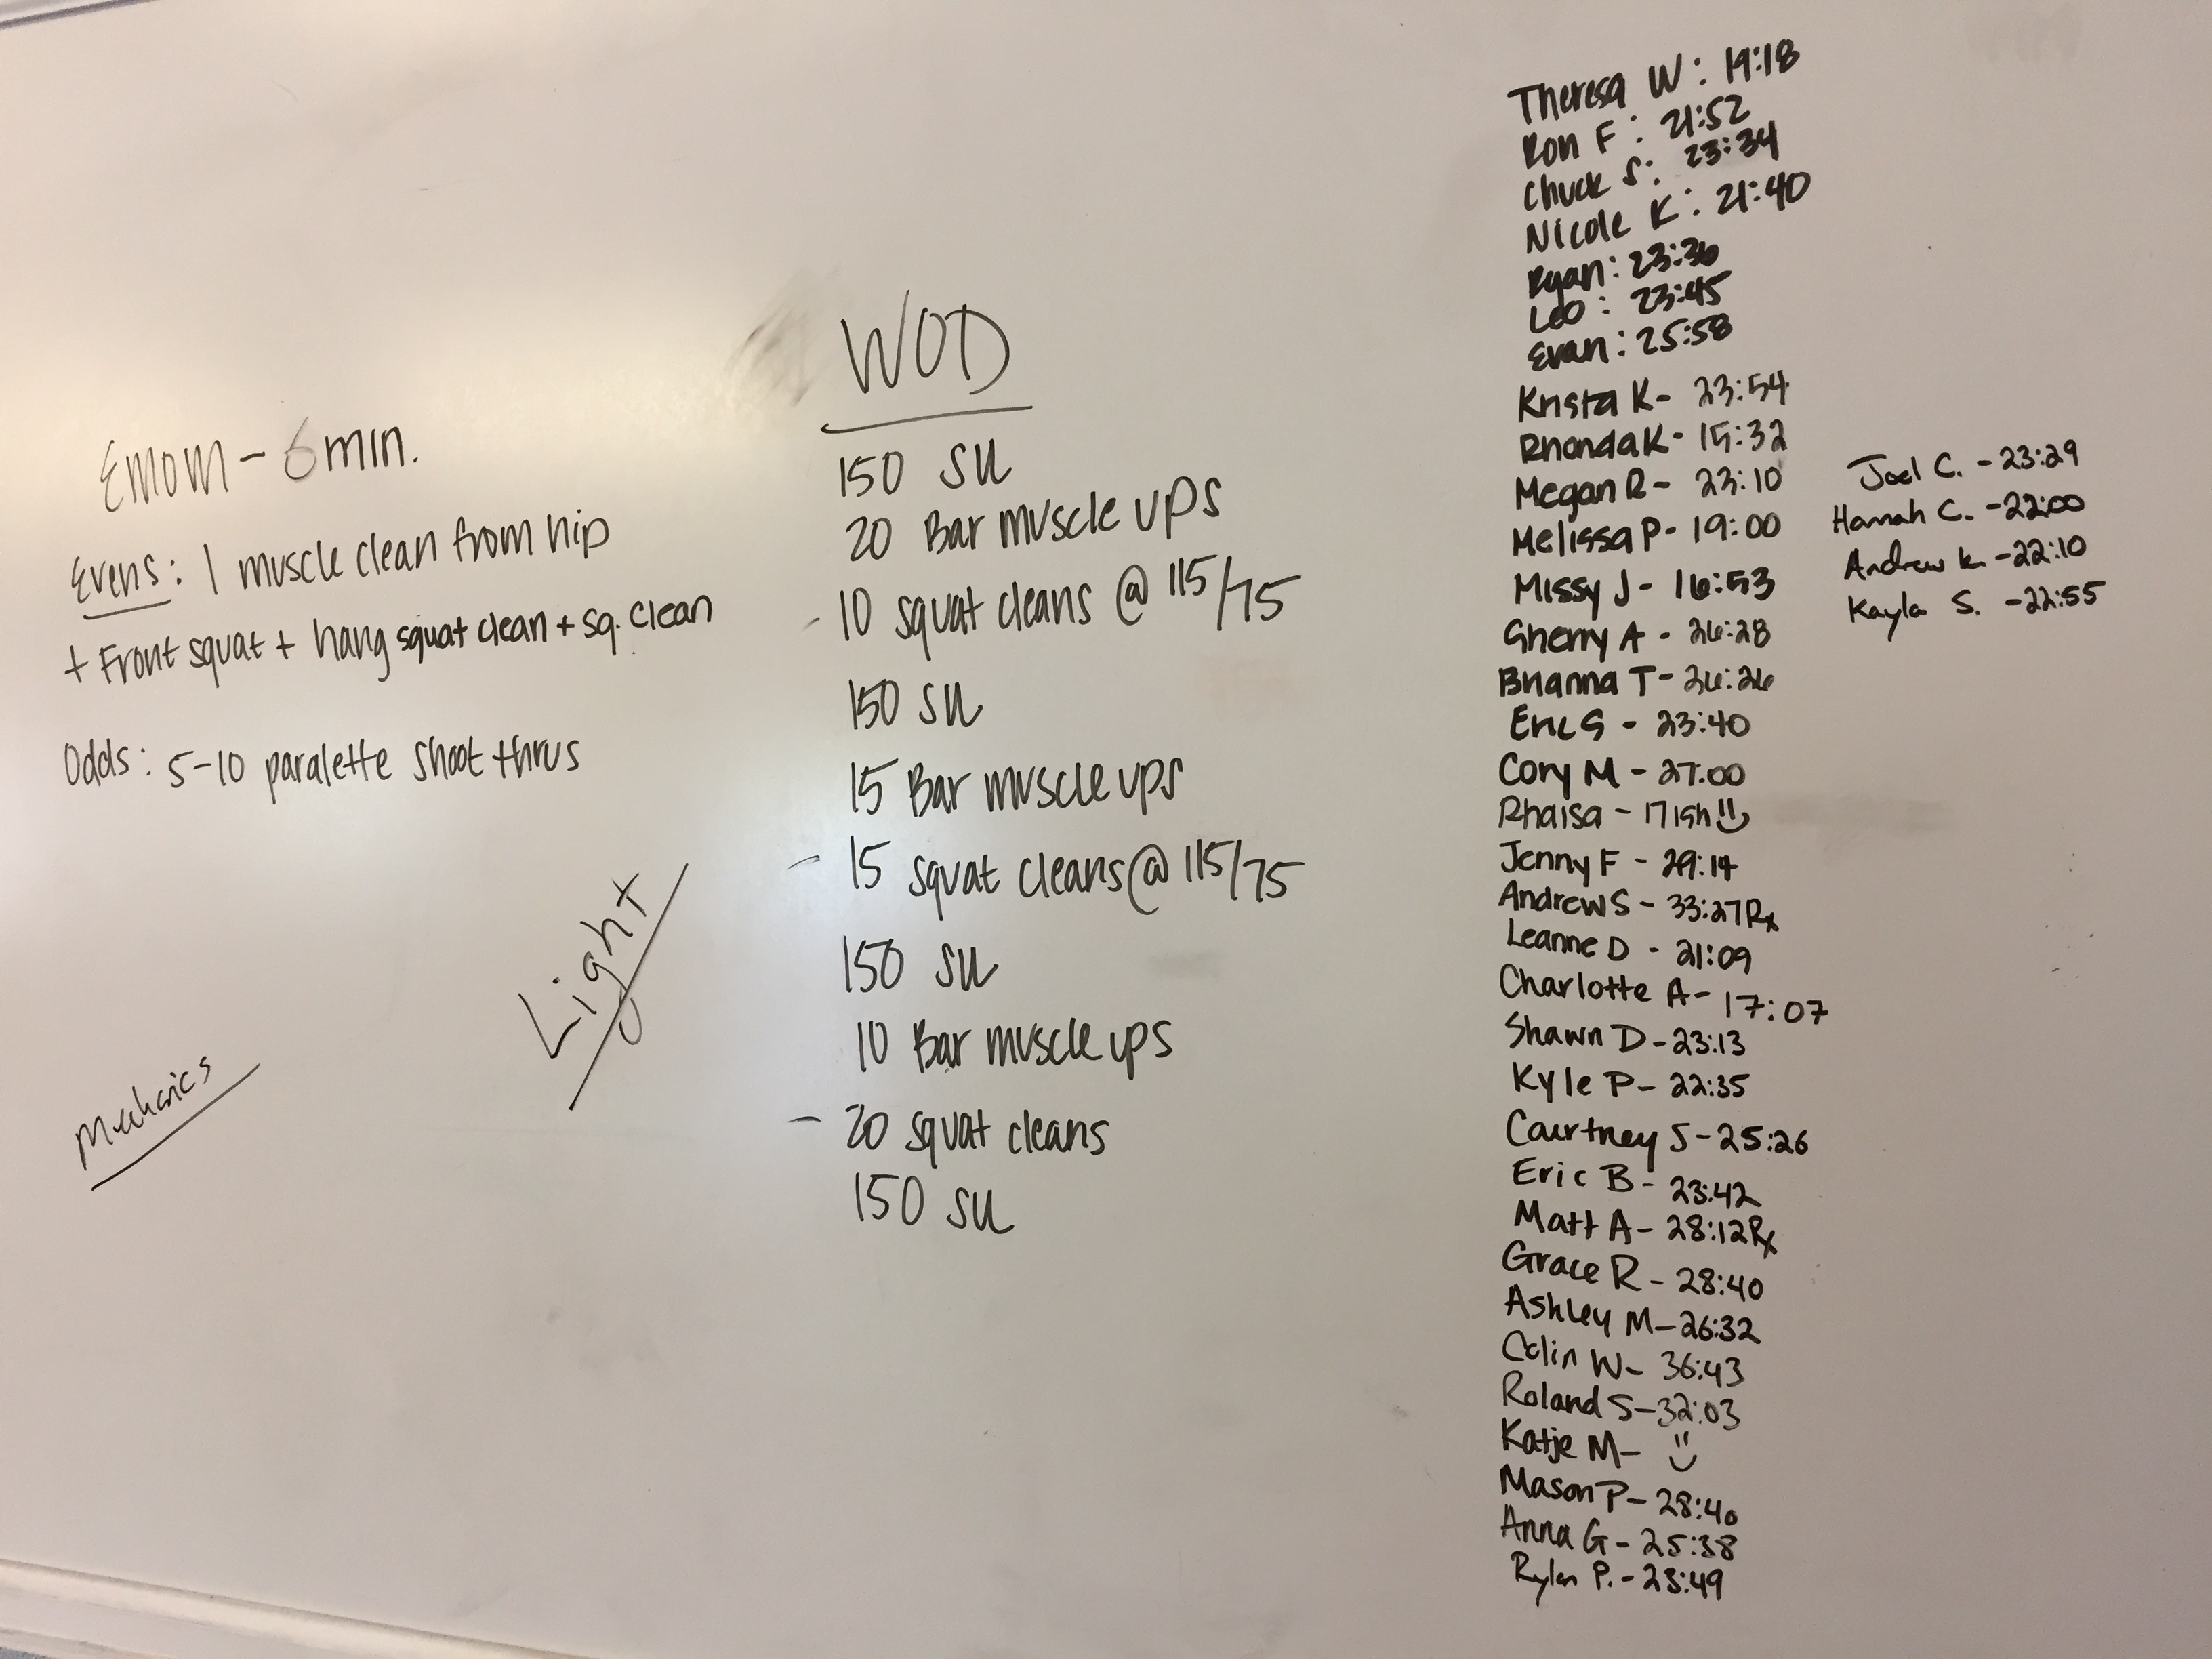 Emom - 6 min.
Evens: 1 muscle clean from hip
+ Front squat + hang squat clean + sq. clean
Odds: 5-10 paralette shoot thrus
Light
Mechanics
WOD
150 SU
20 Bar muscle ups
- 10 squat cleans @ 115/75
150 SU
15 Bar muscle ups
- 15 squat cleans @ 115/75
150 SU
10 Bar muscle ups
- 20 squat cleans
150 SU
Theresa W: 19:18
Ron F: 21:52
Chuck S: 23:34
Nicole K: 21:40
Ryan: 23:36
Leo: 23:45
Evan: 25:58
Krista K- 23:54
Rhonda K- 15:32
Megan R- 23:10
Melissa P- 19:00
Missy J- 16:53
Sherry A - 26:28
Brianna T- 26:26
Eric G - 23:40
Cory M - 27:00
Rhaisa - 17ish
Jenny F - 29:14
Andrew S - 33:27 Rx
Leanne D - 21:09
Charlotte A- 17:07
Shawn D - 23:13
Kyle P- 22:35
Courtney S - 25:26
Eric B - 23:42
Matt A- 28:12 Rx
Grace R - 28:40
Ashley M- 26:32
Colin W- 36:43
Roland S- 32:03
Katje M-
Mason P- 28:40
Anna G - 25:38
Rylan P. - 23:49
Joel C. - 23:29
Hannah C. - 22:00
Andrew K. - 22:10
Kayla S. - 22:55